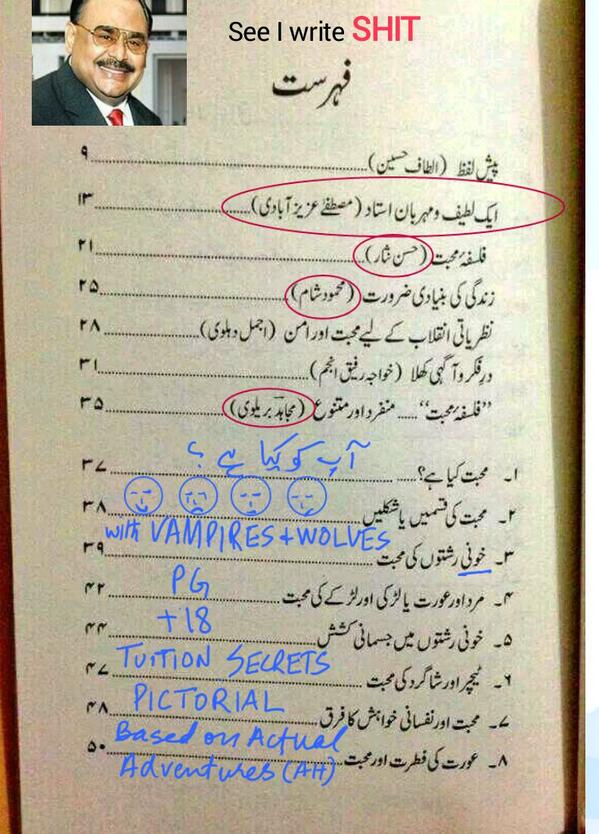 See I write SHIT
فہرست
پیش لفظ (الطاف حسین) ........ ۹
ایک لطیف و مہربان استاد (مصطفےٰ عزیز آبادی) ........ ۱۳
فلسفۂ محبت (حسن نثار) ........ ۲۱
زندگی کی بنیادی ضرورت (محمود شام) ........ ۲۵
نظریاتی انقلاب کے لیے محبت اور امن (اجمل دہلوی) ........ ۲۸
درِ فکر و آگہی کھلا (خواجہ رفیق انجم) ........ ۳۱
”فلسفۂ محبت“ ..... منفرد اور متنوع (مجاہد بریلوی) ........ ۳۵
آپ کو کیا ہے ؟
۱۔ محبت کیا ہے؟ ........ ۳۷
۲۔ محبت کی قسمیں یا شکلیں ........ ۳۸
with VAMPIRES + WOLVES
۳۔ خونی رشتوں کی محبت ........ ۳۹
PG
۴۔ مرد اور عورت یا لڑکی اور لڑکے کی محبت ........ ۴۲
+18
۵۔ خونی رشتوں میں جسمانی کشش ........ ۴۴
TUITION SECRETS
۶۔ ٹیچر اور شاگرد کی محبت ........ ۴۷
PICTORIAL
۷۔ محبت اور نفسانی خواہش کا فرق ........ ۴۸
Based on Actual
Adventures (AH)
۸۔ عورت کی فطرت اور محبت ........ ۵۰